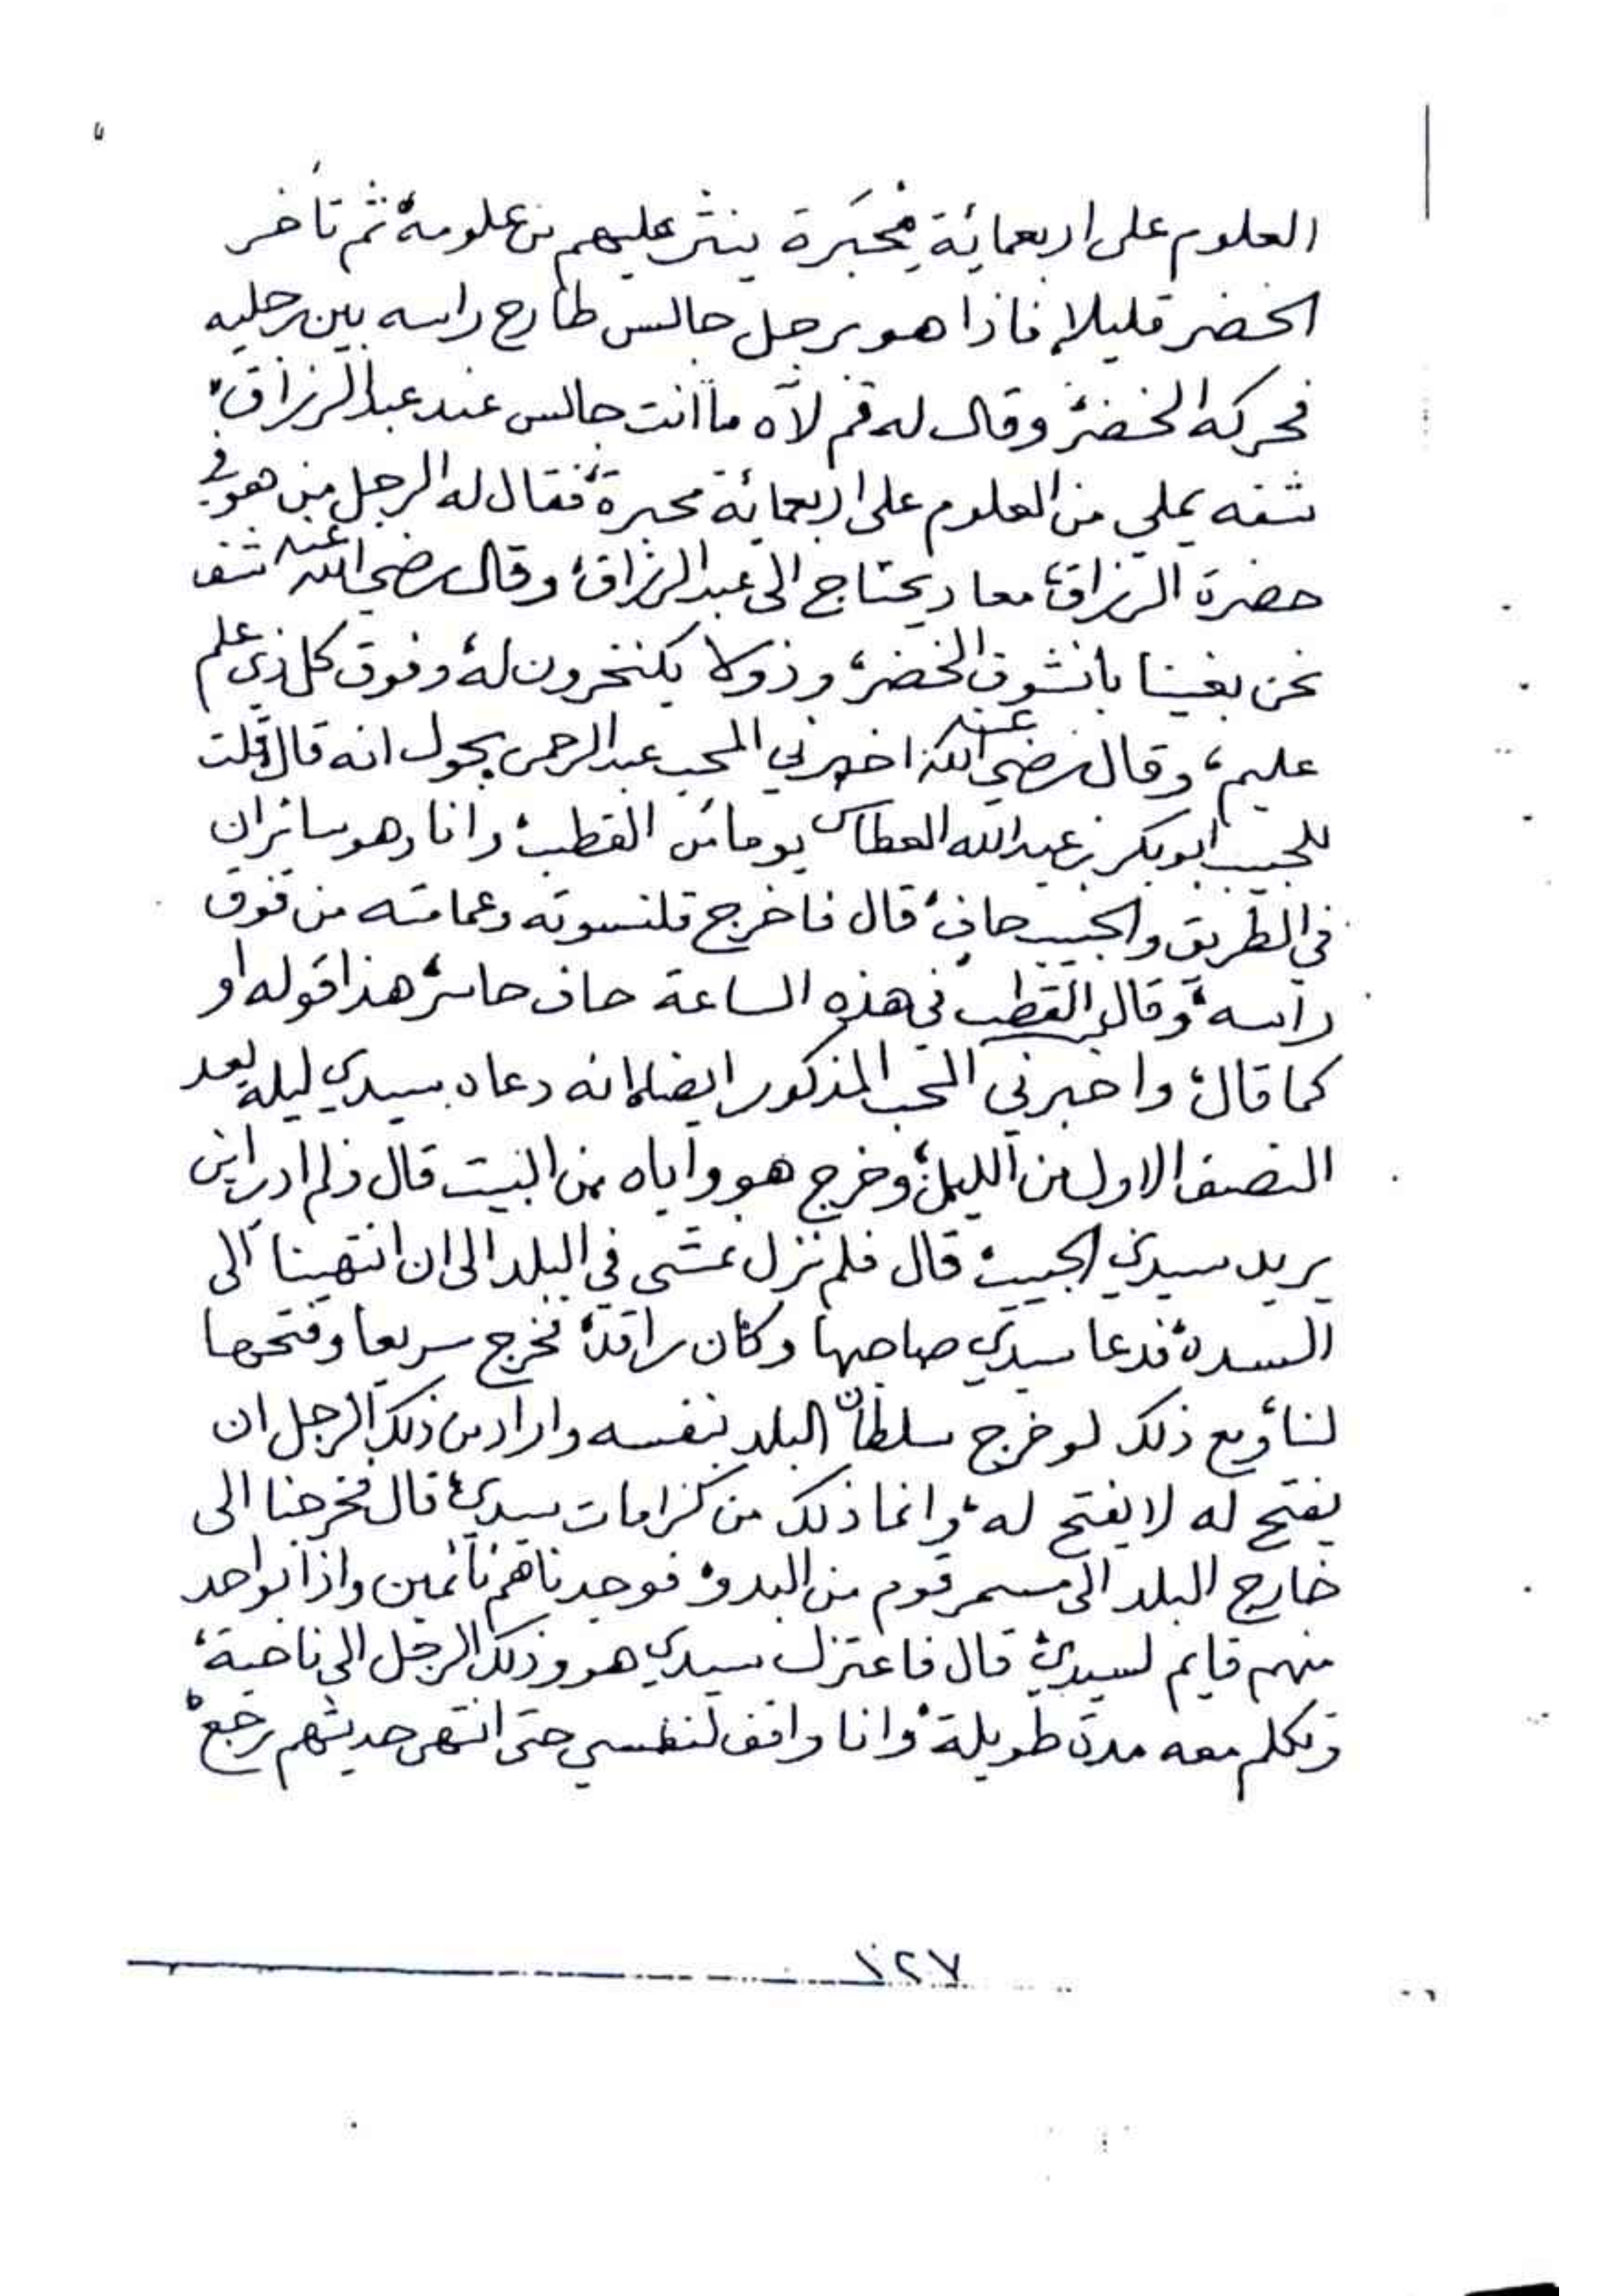 العلوم على اربعمائة مِحْبَرة ينثر عليهم من علومه، ثم تأخر
الخضر قليلا، فاذا هو برجل جالس طارح راسه بين رجليه
فحركه الخضر، وقال له قم لآه ما انت جالس عند عبد الرزاق،
شفه يملي من العلوم على اربعمائة محبرة، فقال له الرجل من هو في
حضرة الرزاق، معاد يحتاج الى عبد الرزاق، وقال رضي الله عنه شف
نحن بغينا بانشوف الخضر، وذولا يكنخرون له، وفوق كل ذي علم
عليم، وقال رضي الله عنه اخبرني المحب عبد الرحمن بحول انه قال قلت
للحبيب ابوبكر بن عبد الله العطاس يوما من القطب، وانا وهو سائران
في الطريق والحبيب حاف، قال فاخرج قلنسوته وعمامته من فوق
راسه، وقال القطب في هذه الساعة حاف حاسر، هذا قوله او
كما قال، واخبرني المحب المذكور ايضا، انه دعاه سيدي ليلة بعد
النصف الاول من الليل، وخرج هو واياه من البيت قال ولم ادر اين
يريد سيدي الحبيب، قال فلم نزل نمشي في البلد الى ان انتهينا الى
السدة، فدعا سيدي صاحبها وكان راقد، فخرج سريعا وفتحها
لنا، ومع ذلك لو خرج سلطان البلد بنفسه واراد من ذلك الرجل ان
يفتح له لا يفتح له، وانما ذلك من كرامات سيدي، قال فخرجنا الى
خارج البلد الى مسمر قوم من البدو، فوجدناهم نائمين واذا بواحد
منهم قايم لسيدي، قال فاعتزل سيدي هو وذلك الرجل الى ناحية،
وتكلم معه مدة طويلة، وانا واقف لنفسي حتى انتهى حديثهم رجع،
١٢٧